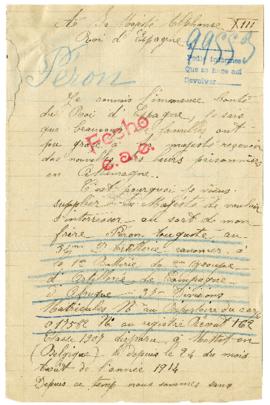 A Sa Majesté Alphonse XIII
Roi d'Espagne
29553
Pedir informes
Que se hace aqui
Devolver
Péron
Je connais l'immense bonté
du Roi d'Espagne, je sais
que beaucoup de familles ont
pu grâce à Sa majesté recevoir
des nouvelles de leurs prisonniers
en Allemagne.
Fecho
C'est pourquoi je viens
supplier Sa Majesté de vouloir
s'intéresser au sort de mon
frère Péron Auguste au
d'Artillerie canonier à
la 1e Batterie de
d'Artillerie de Campagne
d'Afrique Division
Matricules No au Répertoire du corps
017582 No au registre 162
Classe 1907 disparu à
(Belgique) depuis le 24 du mois
Août de l'année 1914
Depuis ce temps nous sommes sans